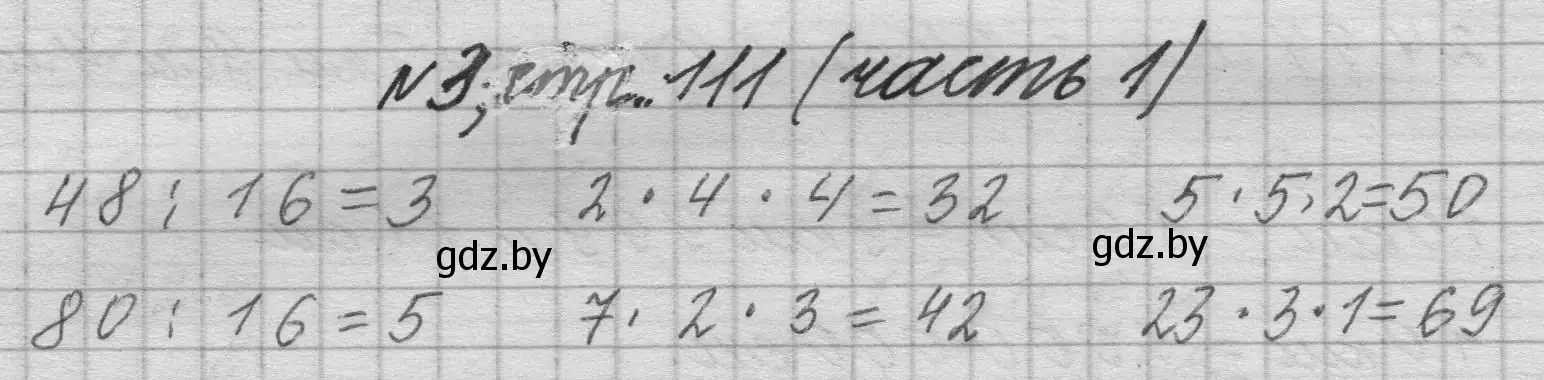 №3; стр. 111 (часть 1)
48 : 16 = 3 2 · 4 · 4 = 32 5 · 5 · 2 = 50
gdz.by gdz.by
80 : 16 = 5 7 · 2 · 3 = 42 23 · 3 · 1 = 69